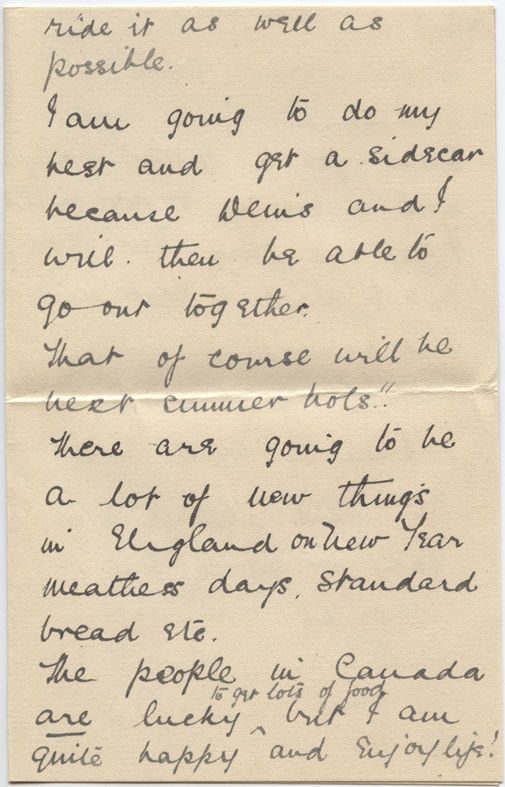 ride it as well as
possible.
I am going to do my
best and get a sidecar
because Denis and I
will. then be able to
go out together.
That of course will be
next summer hols."
There are going to be
a lot of new things
in England on New Year
meatless days, Standard
bread etc.
The people in Canada
to get lots of food
are lucky ^ but I am
quite happy and Enjoy life!